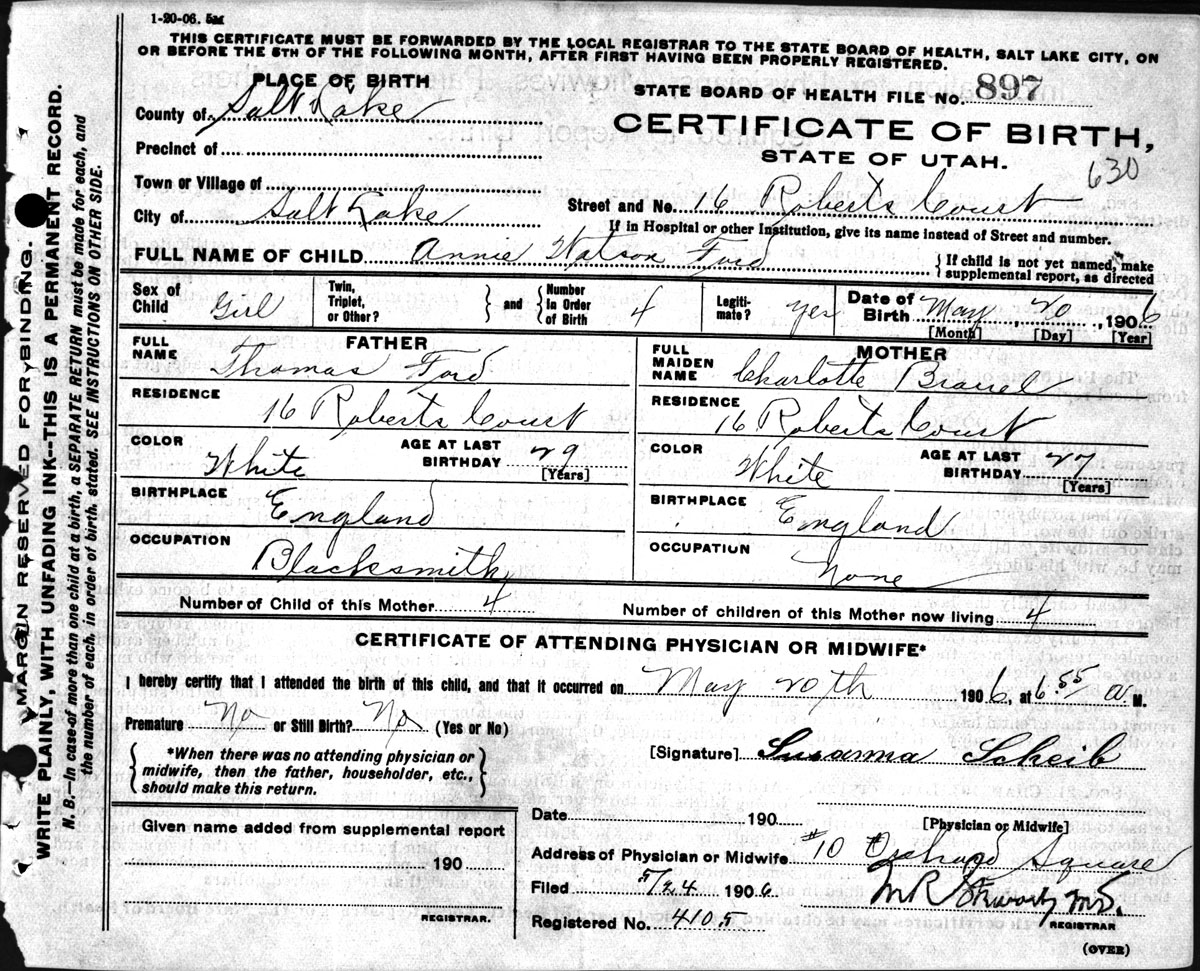 1-20-06. 5M
THIS CERTIFICATE MUST BE FORWARDED BY THE LOCAL REGISTRAR TO THE STATE BOARD OF HEALTH, SALT LAKE CITY, ON
OR BEFORE THE 5TH OF THE FOLLOWING MONTH, AFTER FIRST HAVING BEEN PROPERLY REGISTERED.
PLACE OF BIRTH
STATE BOARD OF HEALTH FILE No. 897
County of Salt Lake
CERTIFICATE OF BIRTH,
Precinct of
STATE OF UTAH.
630
Town or Village of
Street and No. 16 Roberts Court
City of Salt Lake
If in Hospital or other Institution, give its name instead of Street and number.
FULL NAME OF CHILD Annie Watson Ford
{ If child is not yet named, make
supplemental report, as directed
Sex of Child Girl
Twin, Triplet, or Other? } and { Number In Order of Birth 4
Legitimate? yes
Date of Birth May 20, 1906
[Month] [Day] [Year]
FATHER
FULL NAME Thomas Ford
RESIDENCE 16 Roberts Court
COLOR White
AGE AT LAST BIRTHDAY 29
[Years]
BIRTHPLACE England
OCCUPATION Blacksmith
MOTHER
FULL MAIDEN NAME Charlotte
RESIDENCE 16 Roberts Court
COLOR White
AGE AT LAST BIRTHDAY 27
[Years]
BIRTHPLACE England
OCCUPATION None
Number of Child of this Mother 4
Number of children of this Mother now living 4
CERTIFICATE OF ATTENDING PHYSICIAN OR MIDWIFE*
I hereby certify that I attended the birth of this child, and that it occurred on May 20th 1906 at 6.55 a M.
Premature No or Still Birth? No (Yes or No)
{ *When there was no attending physician or
midwife, then the father, householder, etc.,
should make this return. }
[Signature] Susanna Scheib
Given name added from supplemental report
190
REGISTRAR.
Date 190
[Physician or Midwife]
Address of Physician or Midwife #10 Orchard Square
Filed 5/24 1906
M R Stewart M.D.
REGISTRAR
Registered No. 4105
(OVER)
MARGIN RESERVED FOR BINDING.
WRITE PLAINLY, WITH UNFADING INK--THIS IS A PERMANENT RECORD.
N. B.—In case of more than one child at a birth, a SEPARATE RETURN must be made for each, and
the number of each, in order of birth, stated. SEE INSTRUCTIONS ON OTHER SIDE.